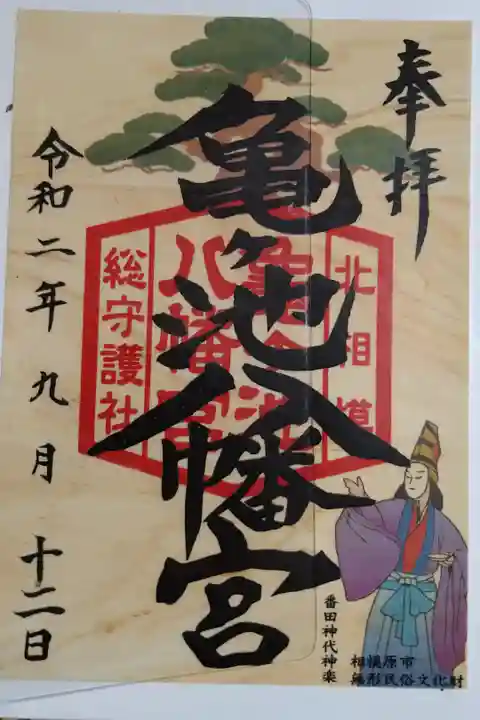 奉拝
亀ヶ池八幡宮
北相模
亀ヶ池
八幡宮
総守護社
令和二年九月十二日
番田神代神楽
相模原市
無形民俗文化財